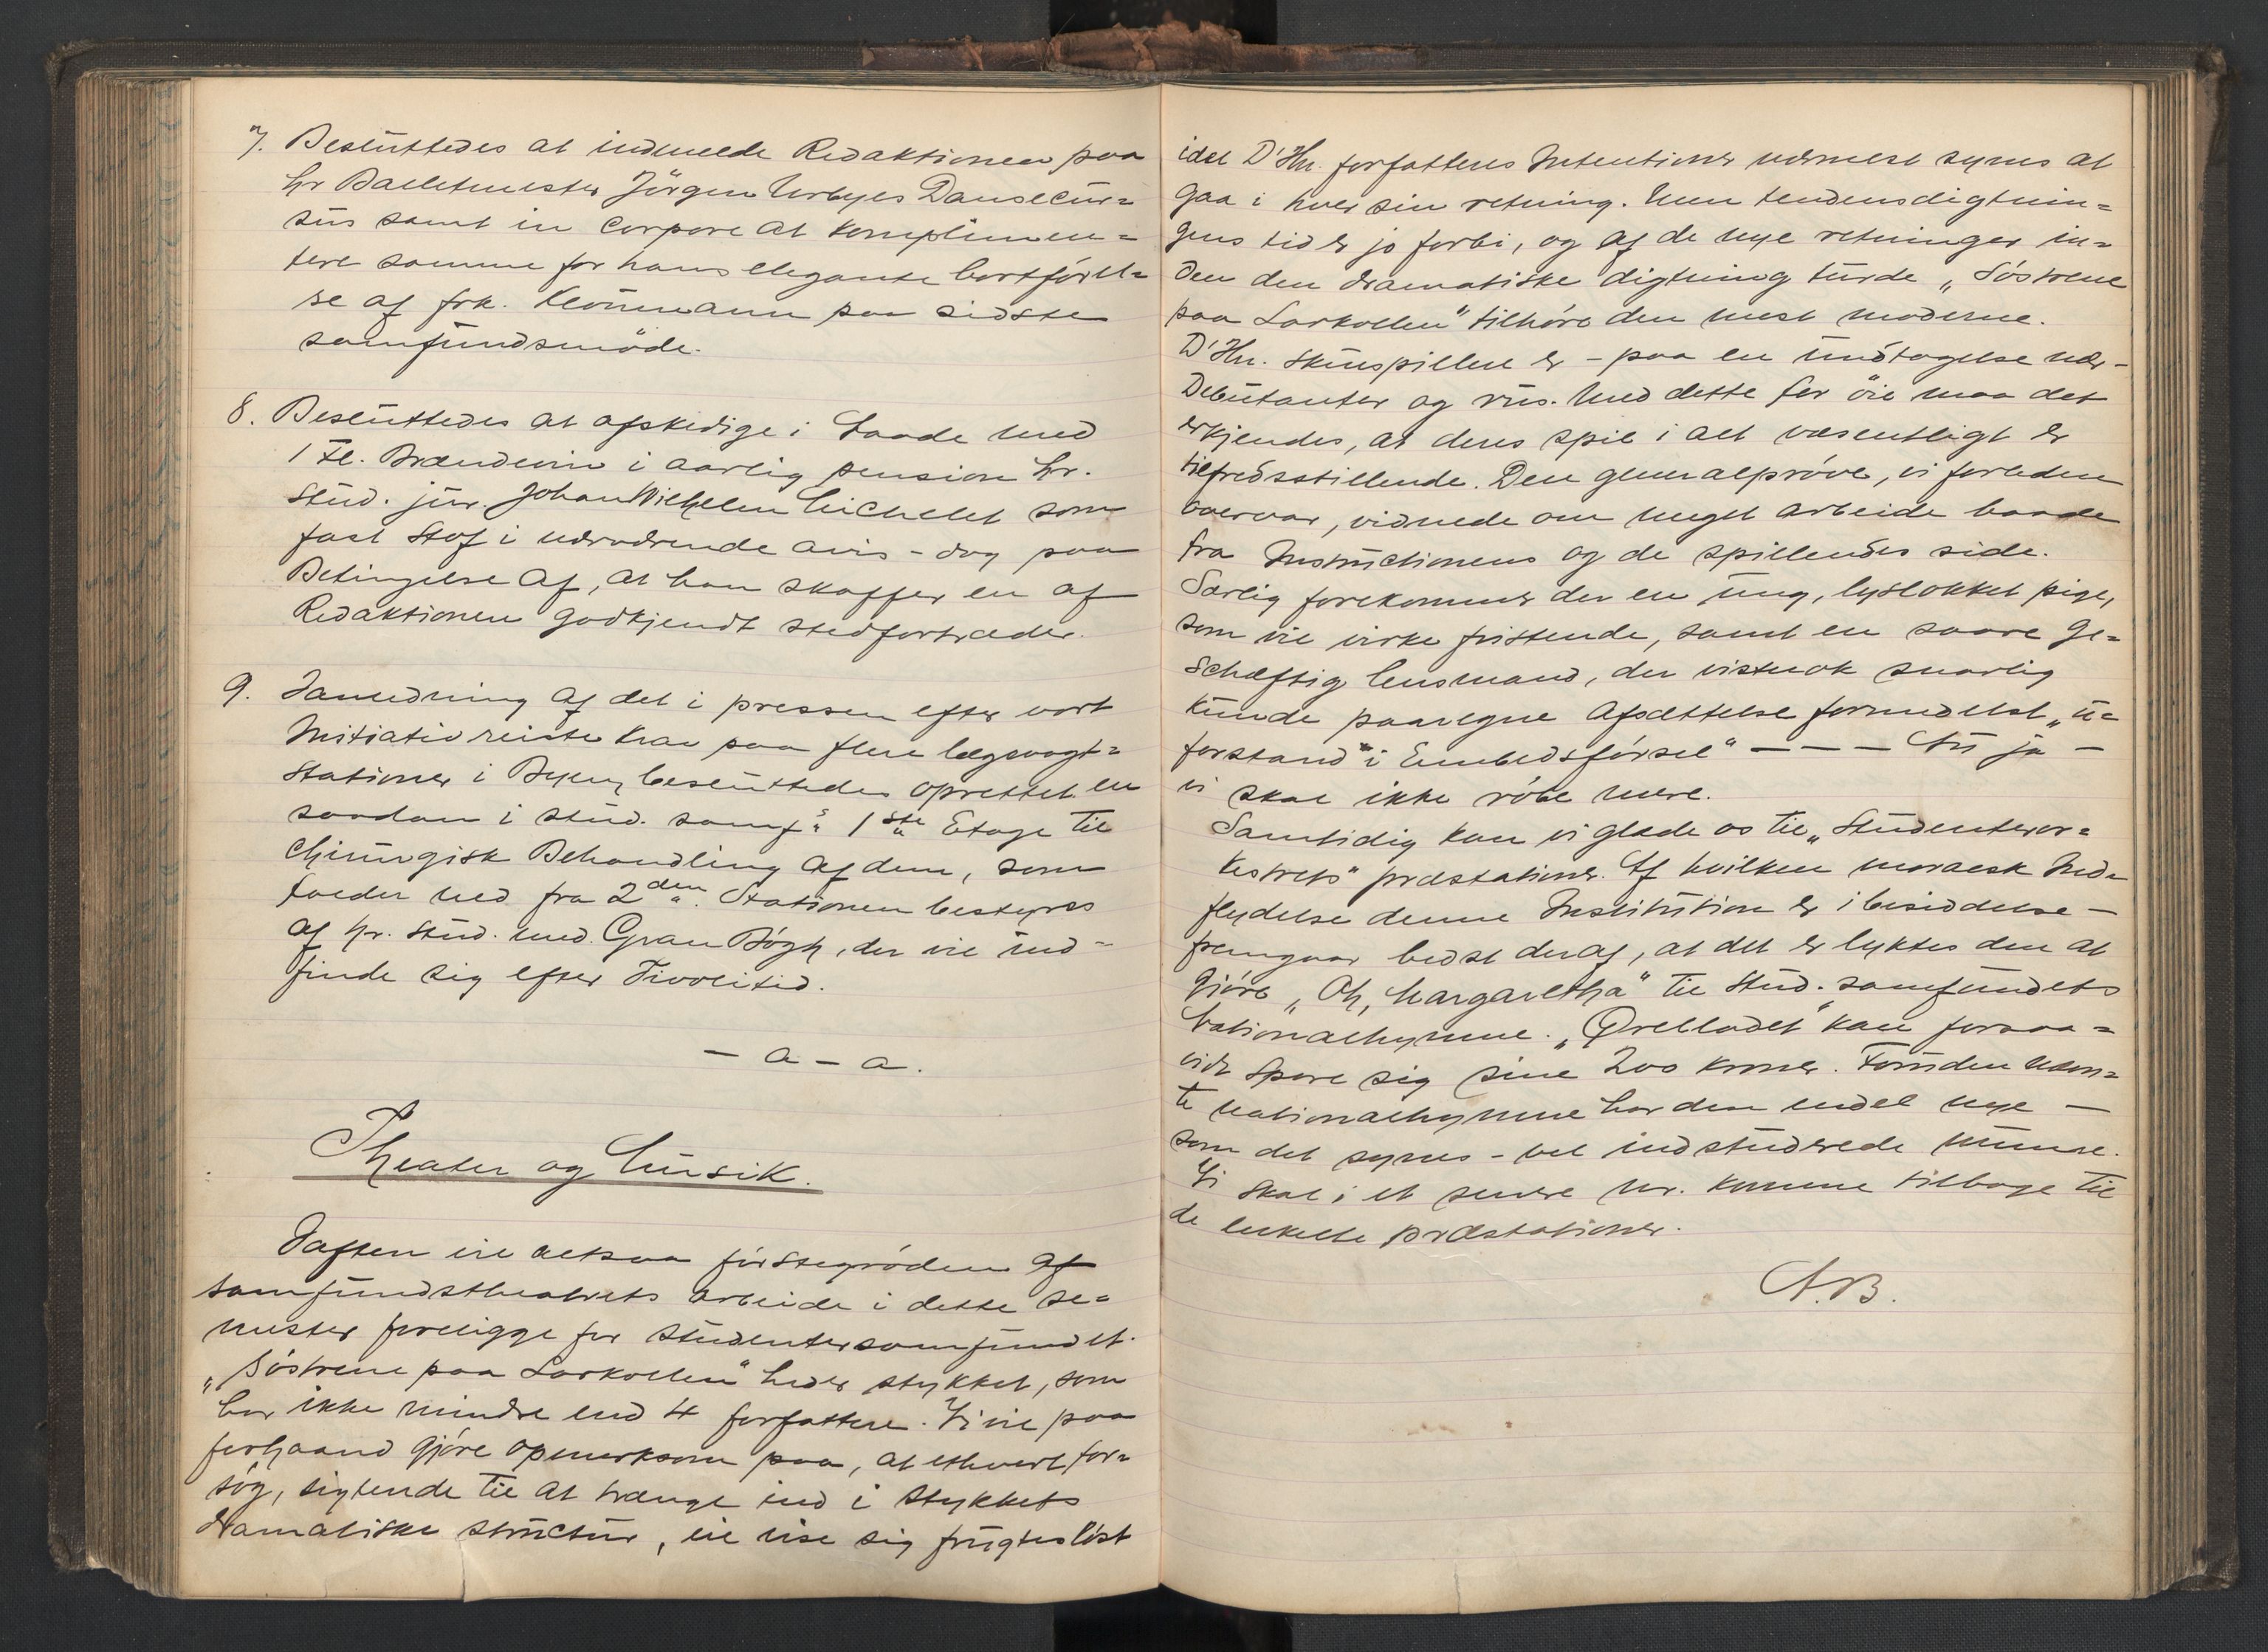 7. Besluttedes at indmelde Redaktionen paa
hr Balletmester Jörgen Urbyes Dansecur=
sus samt in corpore at komplimen=
tere samme for hans elegante bortförel=
se af frk. Klönmann paa sidste
samfundsmöde.
8. Besluttedes at afskedige i Naade med
1 Fl. Brændevin i aarlig pension hr.
Stud. jur. Johan Wilhelm Eichelet som
fast Stof i nærværende avis - dog paa
Betingelse af, at han skaffer en af
Redaktionen godkjendt stedfortræder.
9. I anledning af det i pressen efter vort
Initiativ reiste krav paa flere lægevagt=
Stationer i Byen, besluttedes oprettet en
saadan i stud. samf's 1ste Etage til
chirurgisk Behandling af dem, som
falder ned fra 2den. Stationen bestyres
af hr. stud. med. Gran Bögh, der vil ind=
finde sig efter Tivolitid.
- a - a.
Theater og Musik.
Iaften vil altsaa förstegröden af
samfundstheatrets arbeide i dette se=
mester foreligge for studentersamfundet.
"Söstrene paa Larkollen" heder stykket, som
har ikke mindre end 4 forfattere. Vi vil paa
forhaand gjöre opmerksom paa, at ethvert for=
sög, sigtende til at trænge ind i stykkets
dramatiske structur, vil vise sig frugteslöst
idet D'Hrr. forfatteres Intentioner nærmest synes at
gaa i hver sin retning. Men tendensdigtnin=
gens tid er jo forbi, og af de nye retninger in=
den den dramatiske digtning turde "Söstrene
paa Larkollen" tilhöre den mest moderne.
D'Hrr. skuespillere er - paa en undtagelse nær -
Debutanter og rus. Med dette for öie maa det
erkjendes, at deres spil i alt væsentligt er
tilfredsstillende. Den generalpröve, vi forleden
overvar, vidnede om meget arbeide baade
fra Instructionens og de spillendes side.
Særlig forekommer der en ung, lyslokket pige,
som vil virke fristende, samt en saare ge=
schæftig lensmand, der vistnok snarlig
kunde paaregne Afsættelse formedelst "u=
forstand i Embedsförsel" - - - Nu ja -
vi skal ikke röbe mere.
Samtidig kan vi glæde os til "Studenteror=
kestrets" præstationer. Af hvilken moralsk Ind=
flydelse denne Institution er i besiddelse -
fremgaar bedst deraf, at det er lyktes den at
gjöre "Oh, Margaretha" til Stud. samfundets
Nationalhymne. "Ørebladet" kan forsaa=
vidt spare sig sine 200 kroner. Foruden nævn=
te nationalhymne har den endel nye -
som det synes - vel indstuderede numre.
Vi skal i et senere nr. komme tilbage til
de enkelte præstationer.
A.B.